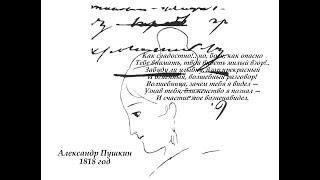 Как сладостно!.. но, боги, как опасно
Тебе внимать, твой видеть милый взор!..
Забуду ли улыбку, взор прекрасный
И пламенный, волшебный разговор!
Волшебница, зачем тебя я видел —
Узнав тебя, блаженство я познал —
И счастие мое возненавидел.
Александр Пушкин
1818 год